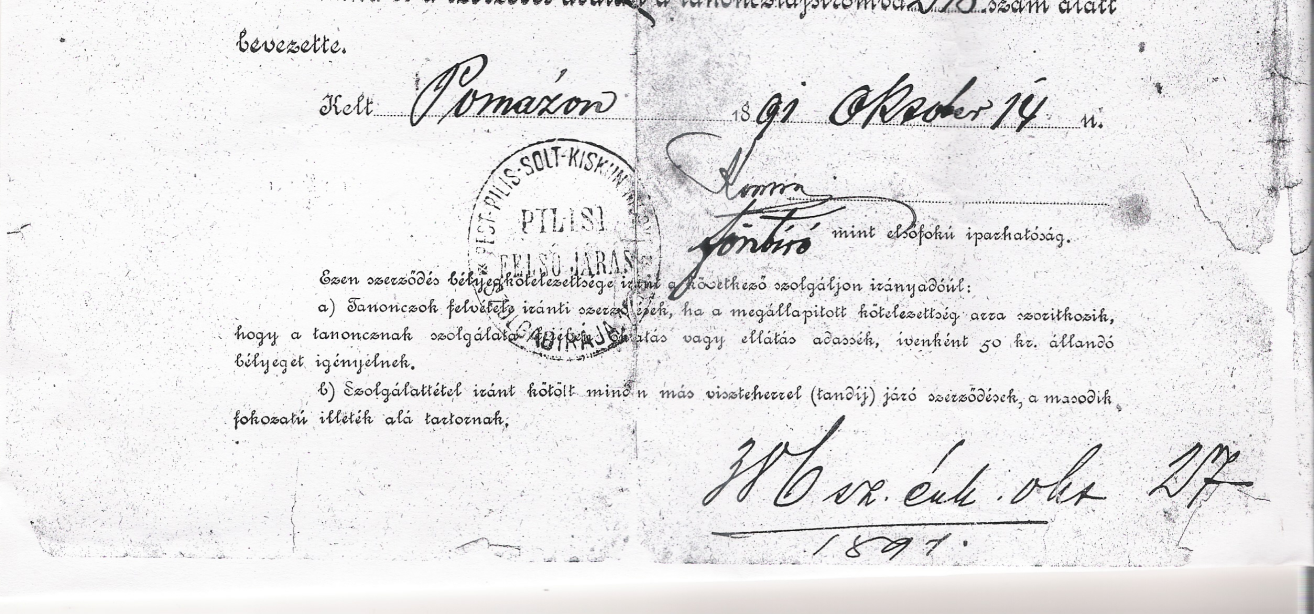 a tanoncslajstromba 218 szám alatt
bevezette.
Kelt Pomázon 1891 Oktober 14 n.
főszbiró mint elsőfokú iparhatóság.
PEST-PILIS-SOLT-KISKUN
PILISI
FELSŐ JÁRÁS
SZOLGABIRÁJA
Ezen szerződés bélyegkötelezettsége iránt a következő szolgáljon irányadóúl:
a) Tanonczok felvétele iránti szerződések, ha a megállapitott kötelezettség arra szoritkozik,
hogy a tanoncznak szolgálata oktatás vagy ellátás adassék, ivenként 50 kr. állandó
bélyeget igényelnek.
b) Szolgálattétel iránt kötött minden más viszteherrel (tandíj) járó szerződések, a második
fokozatú illeték alá tartornak.
sz. érk. okt 27
1891.